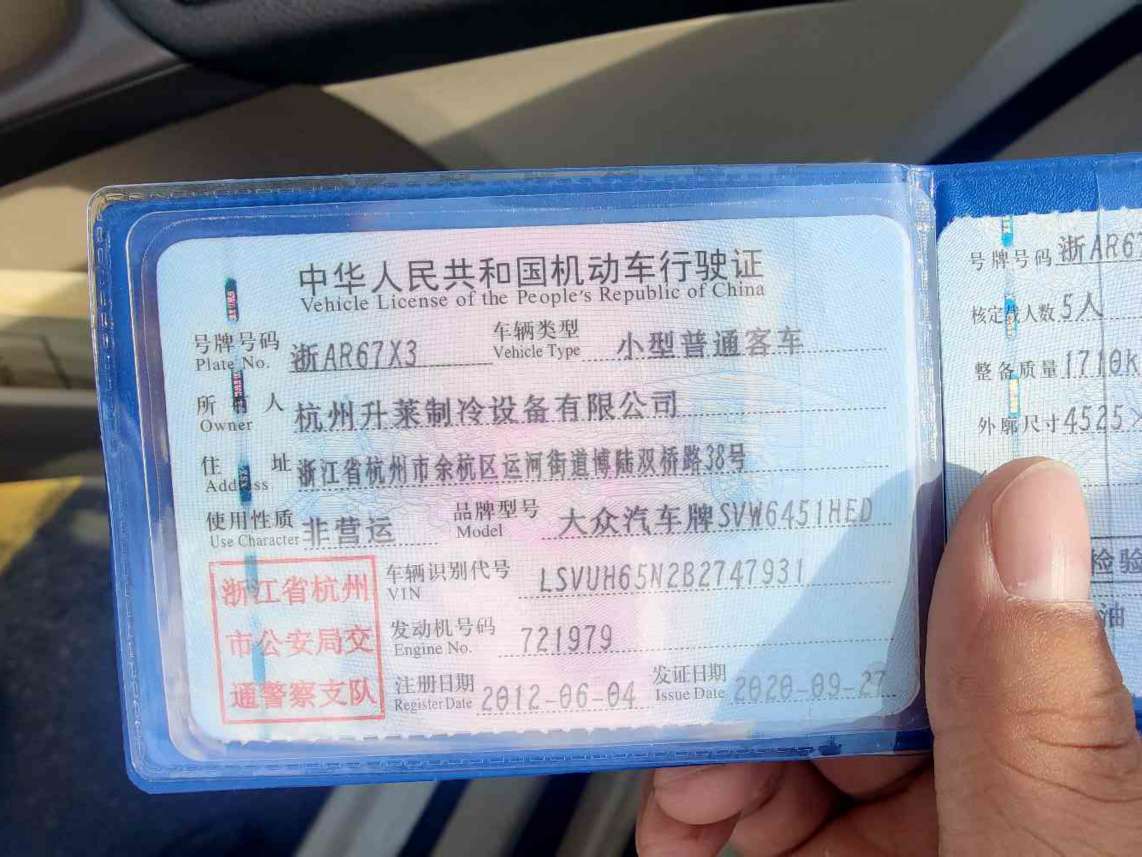 中华人民共和国机动车行驶证
Vehicle License of the People's Republic of China
号牌号码 浙AR67X3 车辆类型 小型普通客车
Plate No. Vehicle Type
所有人 杭州升莱制冷设备有限公司
Owner
住址 浙江省杭州市余杭区运河街道博陆双桥路38号
Address
使用性质 非营运 品牌型号 大众汽车牌SVW6451HED
Use Character Model
浙江省杭州
市公安局交
通警察支队
车辆识别代号 LSVUH65N2B2747931
VIN
发动机号码 721979
Engine No.
注册日期 2012-06-04 发证日期 2020-09-27
Register Date Issue Date
号牌号码 浙AR67
核定载人数 5人
整备质量 1710k
外廓尺寸 4525×
检验
油